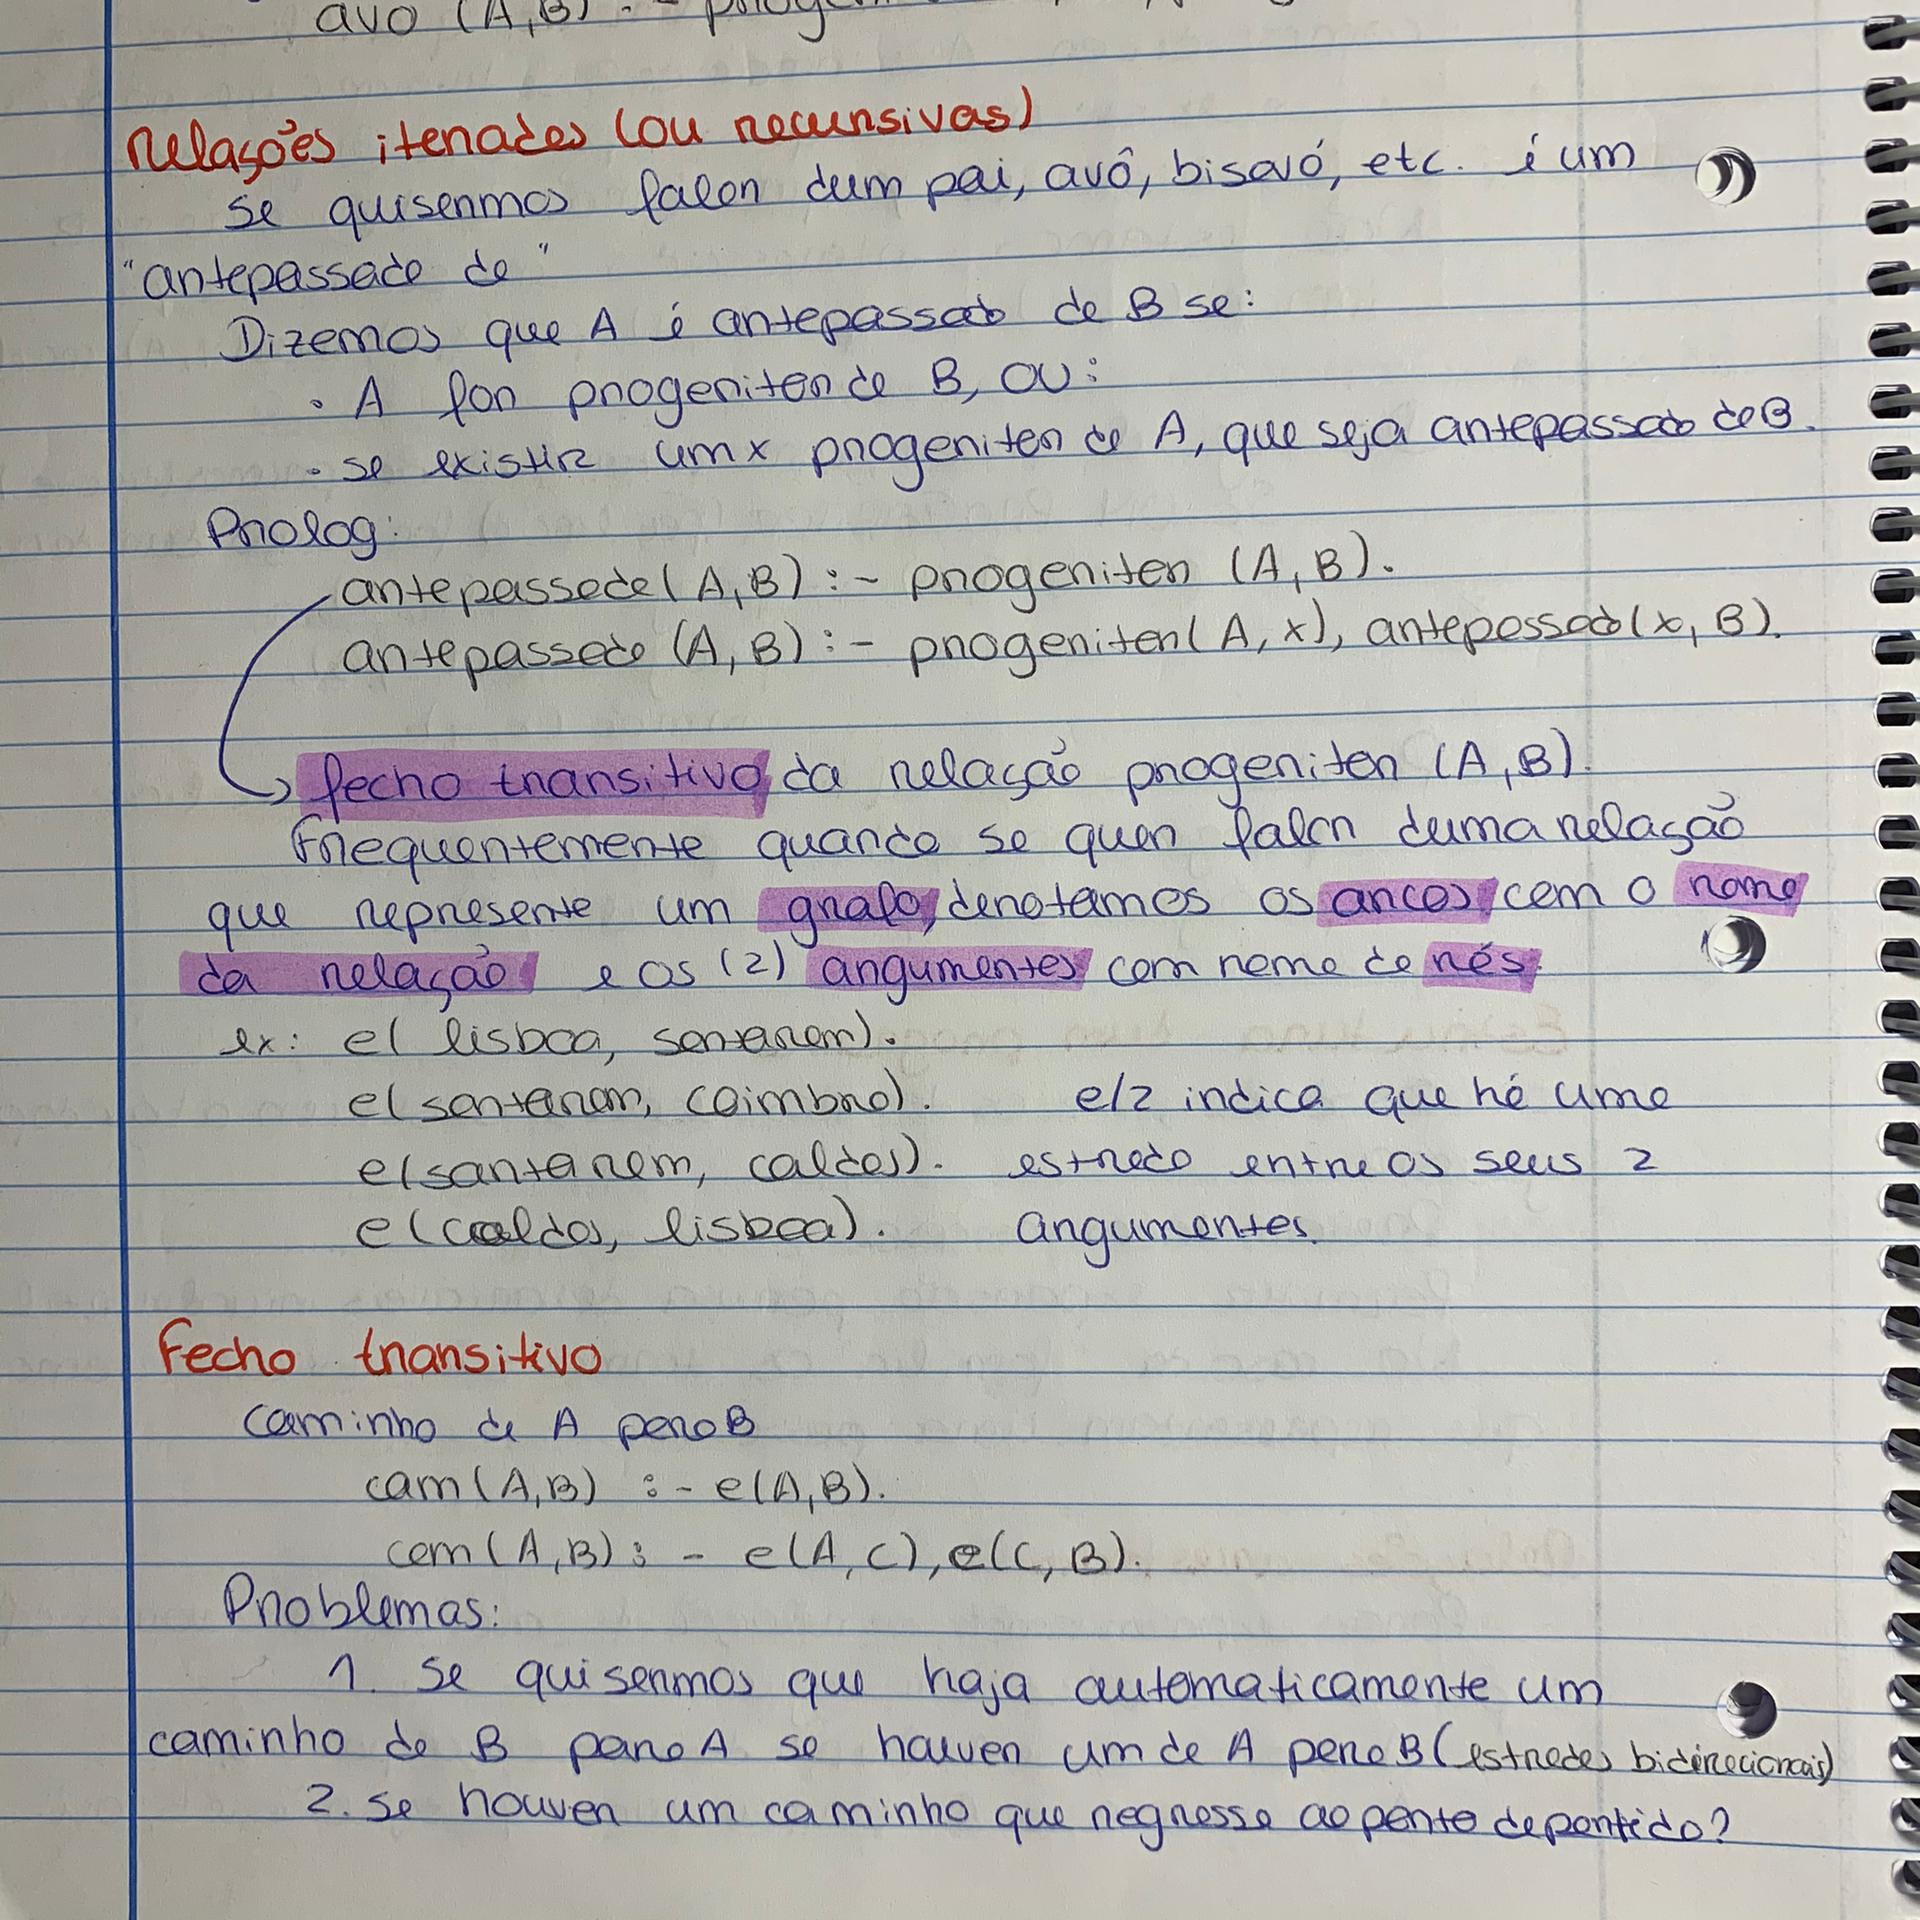 avo (A,B) :- progeni
Relações iteradas (ou recursivas)
se quisermos falar dum pai, avô, bisavó, etc. é um
"antepassado de"
Dizemos que A é antepassado de B se:
• A for progenitor de B, ou:
• se existir um x progenitor de A, que seja antepassado de B.
Prolog:
antepassado(A,B) :- progenitor (A,B).
antepassado (A,B) :- progenitor(A,x), antepassado(x,B).
→ fecho transitivo da relação progenitor (A,B).
Frequentemente quando se quer falar duma relação
que represente um grafo, denotamos os arcos com o nome
da relação e os (2) argumentos com nome de nós.
ex: e( lisboa, santarem).
e(santarem, coimbra). e/2 indica que há uma
e(santarem, caldas). estrada entre os seus 2
e(caldas, lisboa). argumentos.
Fecho transitivo
caminho de A para B
cam(A,B) :- e(A,B).
cam(A,B) :- e(A,C),e(C,B).
Problemas:
1. Se quisermos que haja automaticamente um
caminho de B para A se houver um de A para B (estradas bidirecionais)
2. Se houver um caminho que regresse ao ponto de partida?